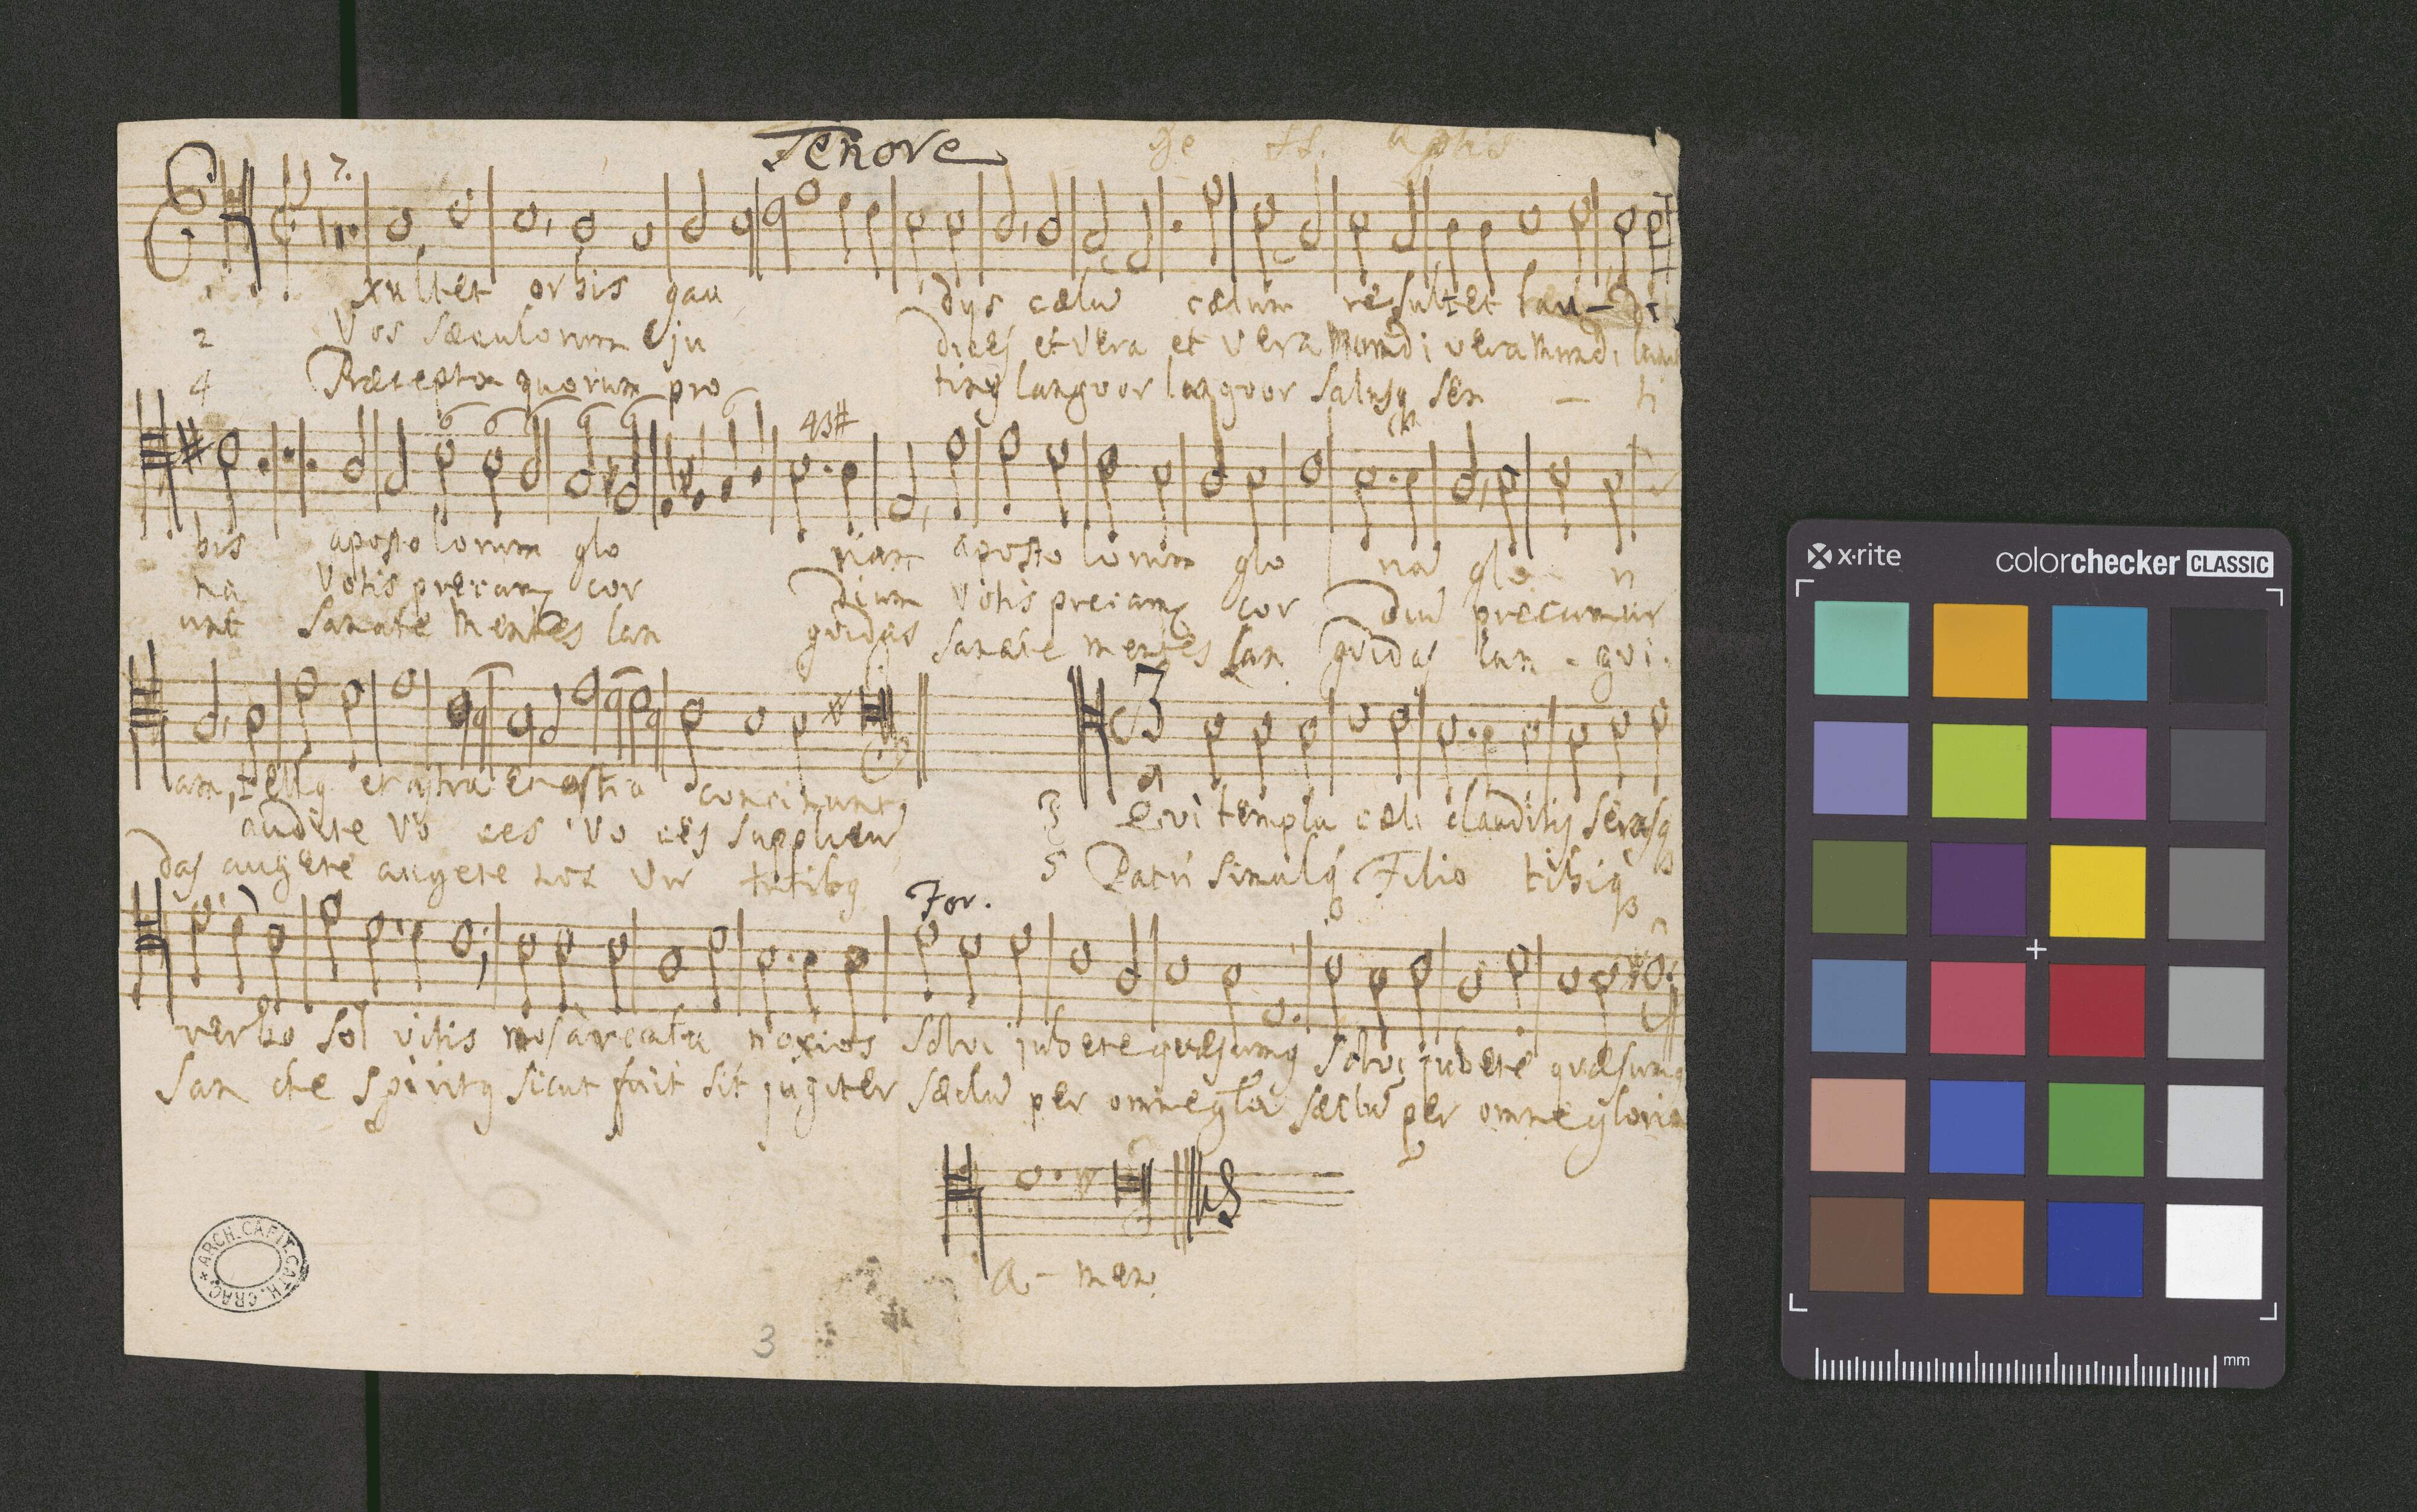 Tenore De SS. Aplis
7.
Exultet orbis gau dys cælu cælum resultet lau-di
2 Vos sæculorum ju dices et vera et vera mundi vera mundi lumi
4 Præcepta quorum pro tinus languor languor salusq sen - ti
6 6 6 6 6 43#
bis apostolorum glo riam apostolorum glo ria glo - ri
na votis precamur cor dium votis precamur cor diu precamur
unt sanate mentes lan guidas sanate mentes lan guidas lan - gui.
3
am, tellus et astra et astra concinunt,
audite vo ces vo ces supplicu 3 Qui templa cæli clauditis serasq
das augete augete nos vir tutibus 5 Patri simulq Filio tibiq
For.
verbo sol vitis nos a reatu noxios solvi jubete quæsumus solvi jubete quæsumus
San cte Spiritus sicut fuit sit jugiter sæclu per omne gloria sæclu per omne gloria
A - men.
ARCH. CAPIT. CATH. CRAC.
3
x·rite colorchecker CLASSIC
mm